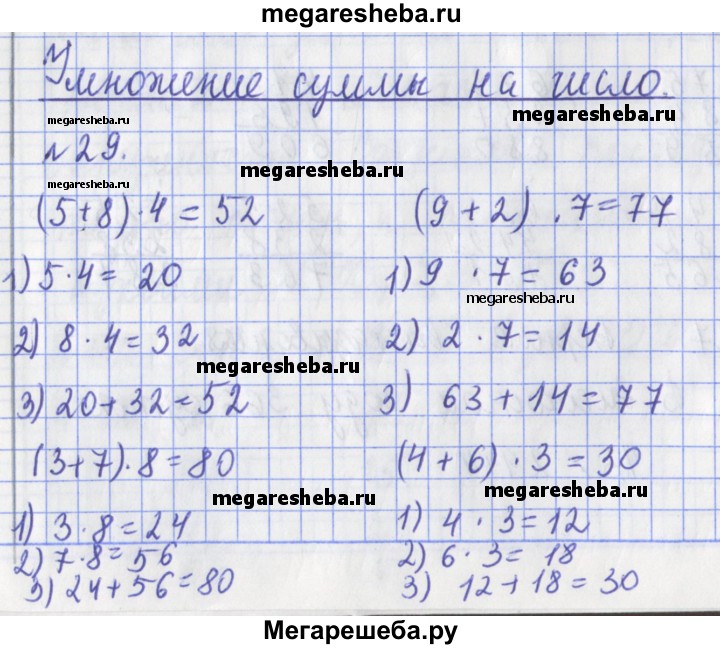 megaresheba.ru
Умножение суммы на число.
megaresheba.ru megaresheba.ru
№29. megaresheba.ru
megaresheba.ru
(5+8)·4=52 (9+2).7=77
1) 5·4=20 1) 9·7=63
megaresheba.ru
2) 8·4=32 2) 2·7=14
megaresheba.ru
3) 20+32=52 3) 63+14=77
(3+7)·8=80 (4+6)·3=30
megaresheba.ru megaresheba.ru
1) 3·8=24 1) 4·3=12
2) 7·8=56 2) 6·3=18
3) 24+56=80 3) 12+18=30
Мегарешеба.ру